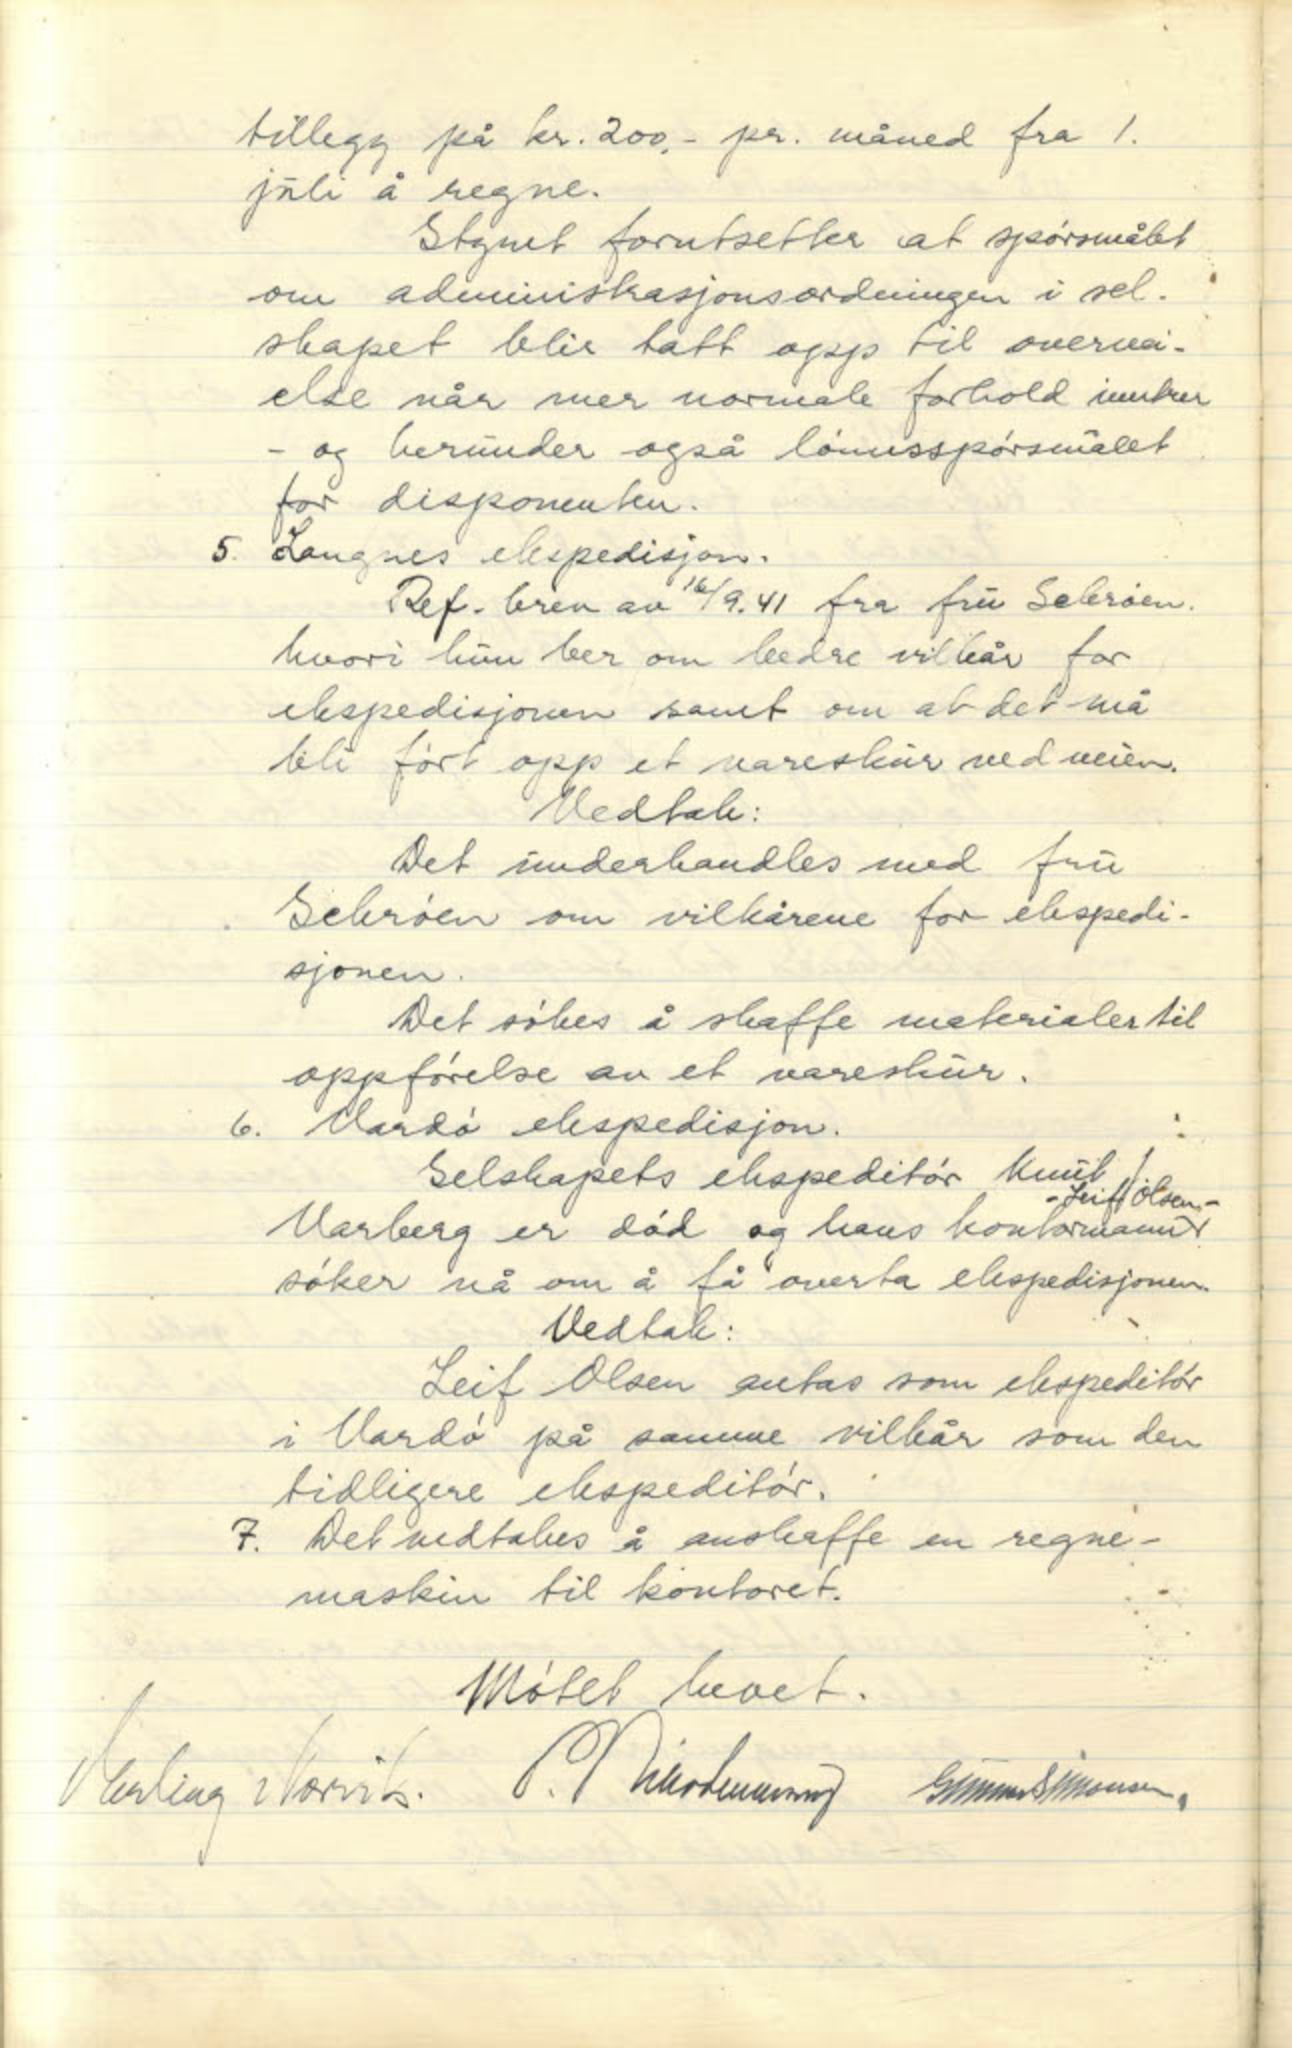 tillegg på kr. 200,- pr. måned fra 1.
juli å regne.
Styret forutsetter at spørsmålet
om administrasjonsordningen i sel-
skapet blir tatt opp til overvei-
else når mer normale forhold inntrer
- og herunder også lønnsspørsmålet
for disponenten.
5. Langnes ekspedisjon.
Ref. brev av 16/9.41 fra fru Schrøen.
hvori hun ber om bedre vilkår for
ekspedisjonen samt om at det må
bli ført opp et vareskur ved veien.
Vedtak:
Det underhandles med fru
Schrøen om vilkårene for ekspedi-
sjonen.
Det søkes å skaffe materialer til
oppførelse av et vareskur.
6. Vardø ekspedisjon.
Selskapets ekspeditør Knut
- Leif Olsen -
Varberg er død og hans kontormann
søker nå om å få overta ekspedisjonen.
Vedtak:
Leif Olsen antas som ekspeditør
i Vardø på samme vilkår som den
tidligere ekspeditør.
7. Det vedtakes å anskaffe en regne-
maskin til kontoret.
Møtet hevet.
Gunnar Simonsen.